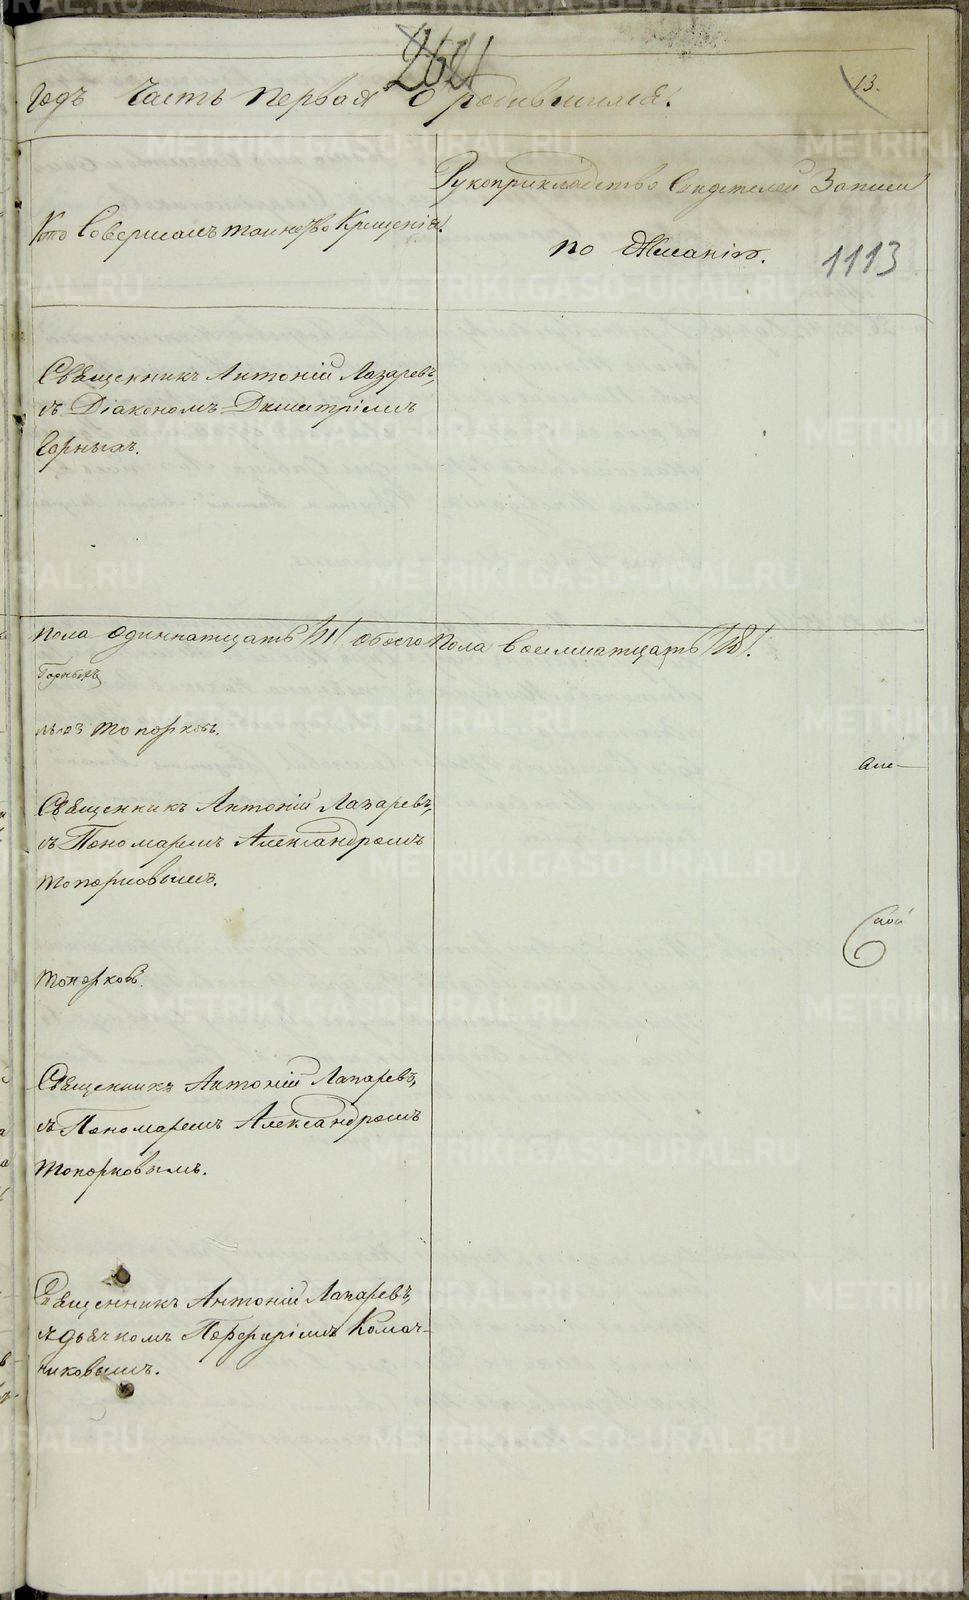 264
13.
годъ Часть первая о родившихся.
Кто Совершалъ таинство Крещенія.
Рукоприкладство Свидетелей Записи
по Желанію.
1113
Священникъ Антоній Лазаревъ,
съ Діакономъ Димитріемъ
Горныхъ.
пола одиннатцать /11/ обоего пола восемнатцать /18/.
Горныхъ
Топорковъ.
Священникъ Антоній Лазаревъ,
съ Пономаремъ Александромъ
Топорковымъ.
Топорковъ.
Священникъ Антоній Лазаревъ,
съ Пономаремъ Александромъ
Топорковымъ.
Священникъ Антоній Лазаревъ,